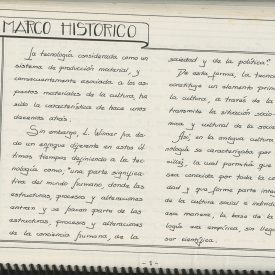 MARCO HISTORICO
La tecnología considerada como un
sistema de producción material, y
consecuentemente asociada a los as-
pectos materiales de la cultura, ha
sido la característica de hace unos
decenios atrás.
Sin embargo, L. Winar ha da-
do un enfoque diferente en estos úl-
timos tiempos definiendo a la tec-
nología como, "una parte significa-
tiva del mundo humano, donde las
estructuras, procesos y alteraciones
entran y se hacen parte de las
estructuras, procesos y alteraciones
de la conciencia humana, de la
sociedad y de la política".
De esta forma, la tecno
constituye un elemento prim
la cultura, a través de la
transmite la situación socio-
mica y cultural de la socie
Así, en la antigua cultura
nología se caracterizaba por
cillez, la cual permitía que
sea conocida por toda la co
dad y que forme parte integ
de la cultura social e individ
esa manera, la base de la
logía era empírica, sin lleg
ser científica.
- 1 -